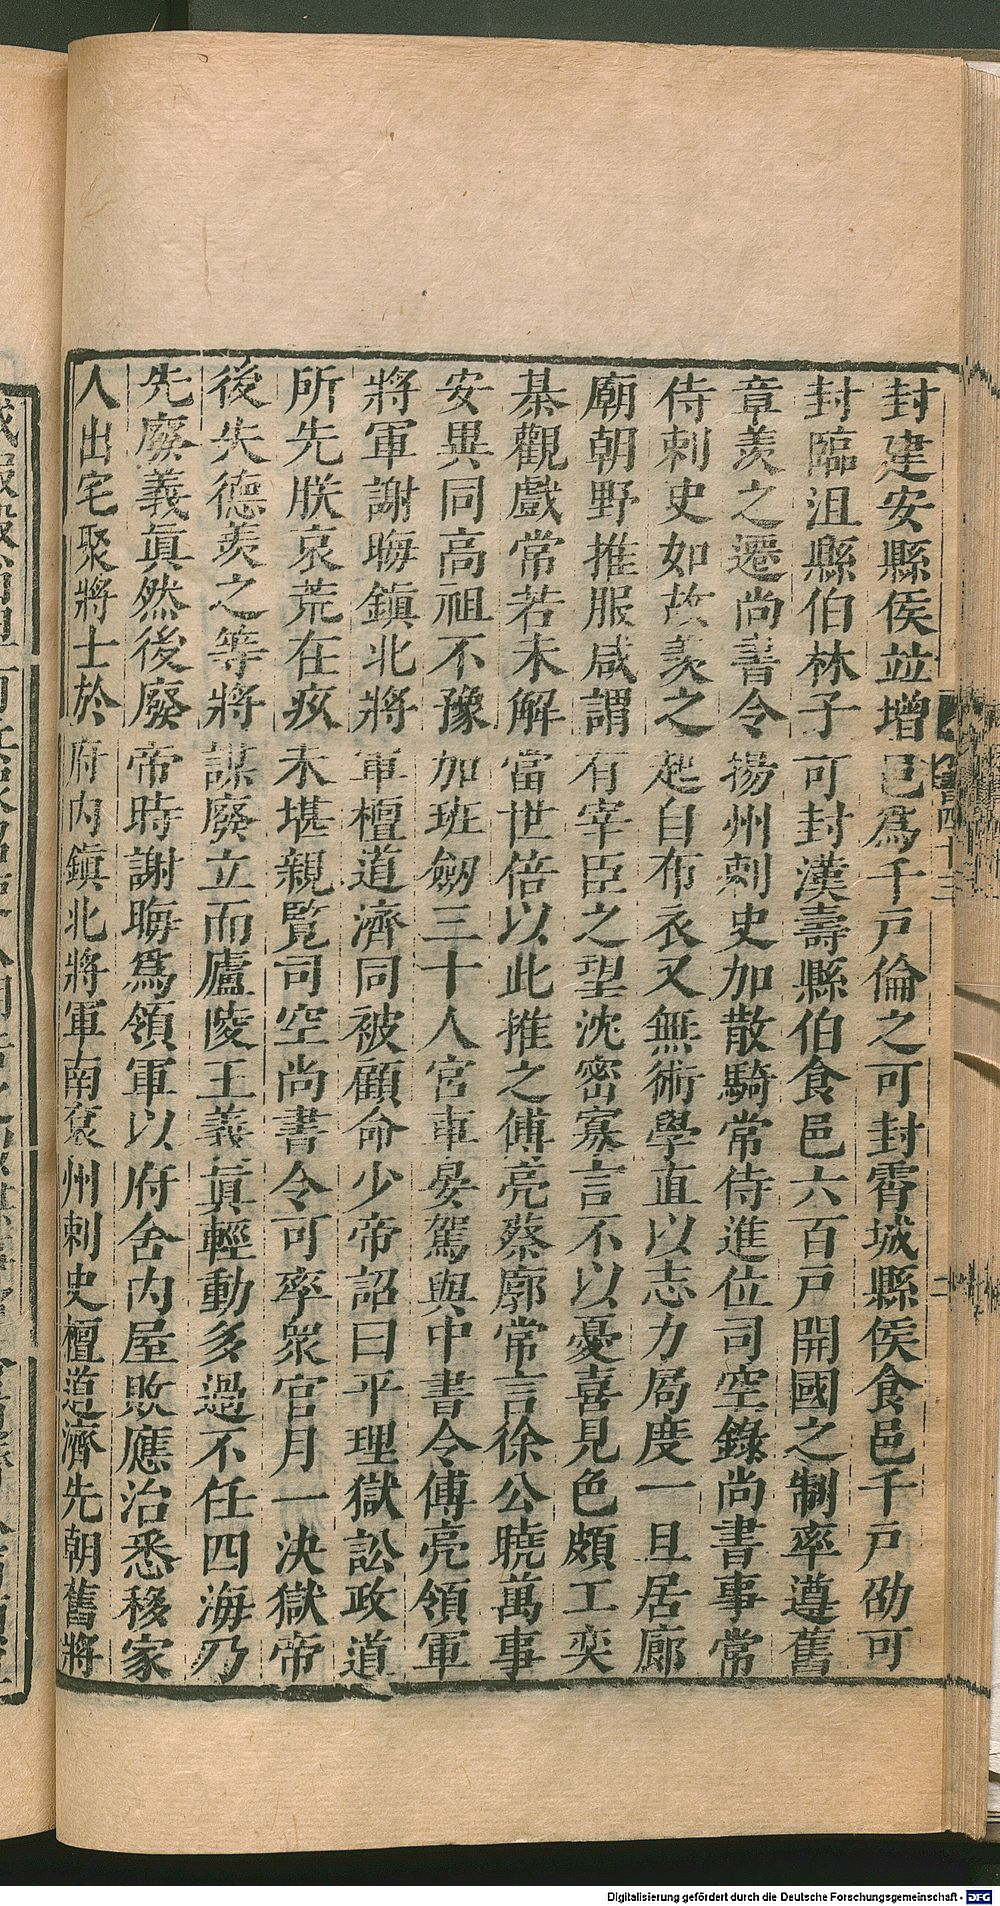 封建安縣侯竝增邑爲千戶倫之可封霄城縣侯食邑千戶劭可
封臨沮縣伯林子可封漢壽縣伯食邑六百戶開國之制率遵舊
章羨之遷尚書令揚州刺史加散騎常侍進位司空錄尚書事常
侍刺史如故羨之起自布衣又無術學直以志力局度一旦居廊
廟朝野推服咸謂有宰臣之望沈密寡言不以憂喜見色頗工奕
棊觀戲常若未解當世倍以此推之傅亮蔡廓常言徐公曉萬事
安異同高祖不豫加班劒三十人宮車晏駕與中書令傅亮領軍
將軍謝晦鎮北將軍檀道濟同被顧命少帝詔曰平理獄訟政道
所先朕哀荒在疚未堪親覽司空尚書令可率衆官月一決獄帝
後失德羨之等將謀廢立而廬陵王義眞輕動多過不任四海乃
先廢義眞然後廢帝時謝晦爲領軍以府舍內屋敗應治悉移家
人出宅聚將士於府內鎮北將軍南兗州刺史檀道濟先朝舊將
Digitalisierung gefördert durch die Deutsche Forschungsgemeinschaft - DFG